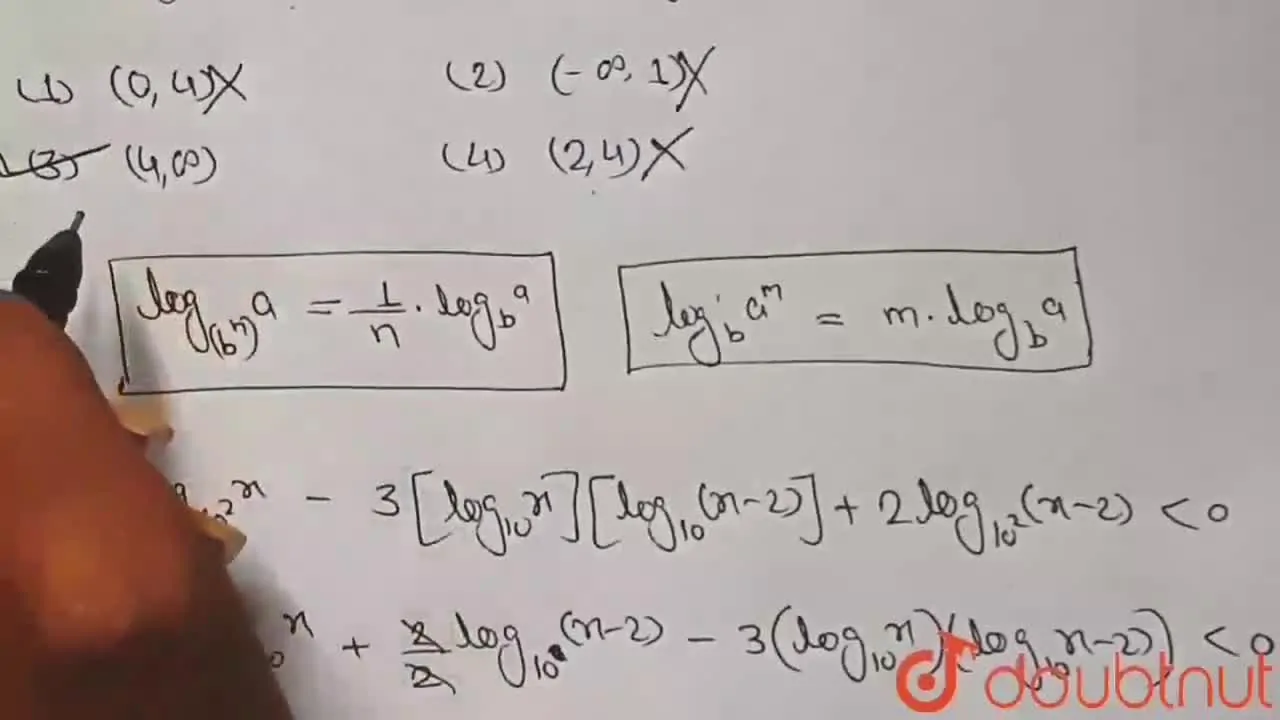 (1) (0,4)X (2) (-∞, 1)X
(3) (4,∞) (4) (2,4)X
log_(b^n) a = 1/n · log_b a log_b a^m = m · log_b a
10^2 x - 3[log_10 x][log_10 (x-2)] + 2log_10^2 (x-2) < 0
10 x + 2/2 log_10 (x-2) - 3(log_10 x)(log_10 x-2)) < 0
doubtnut